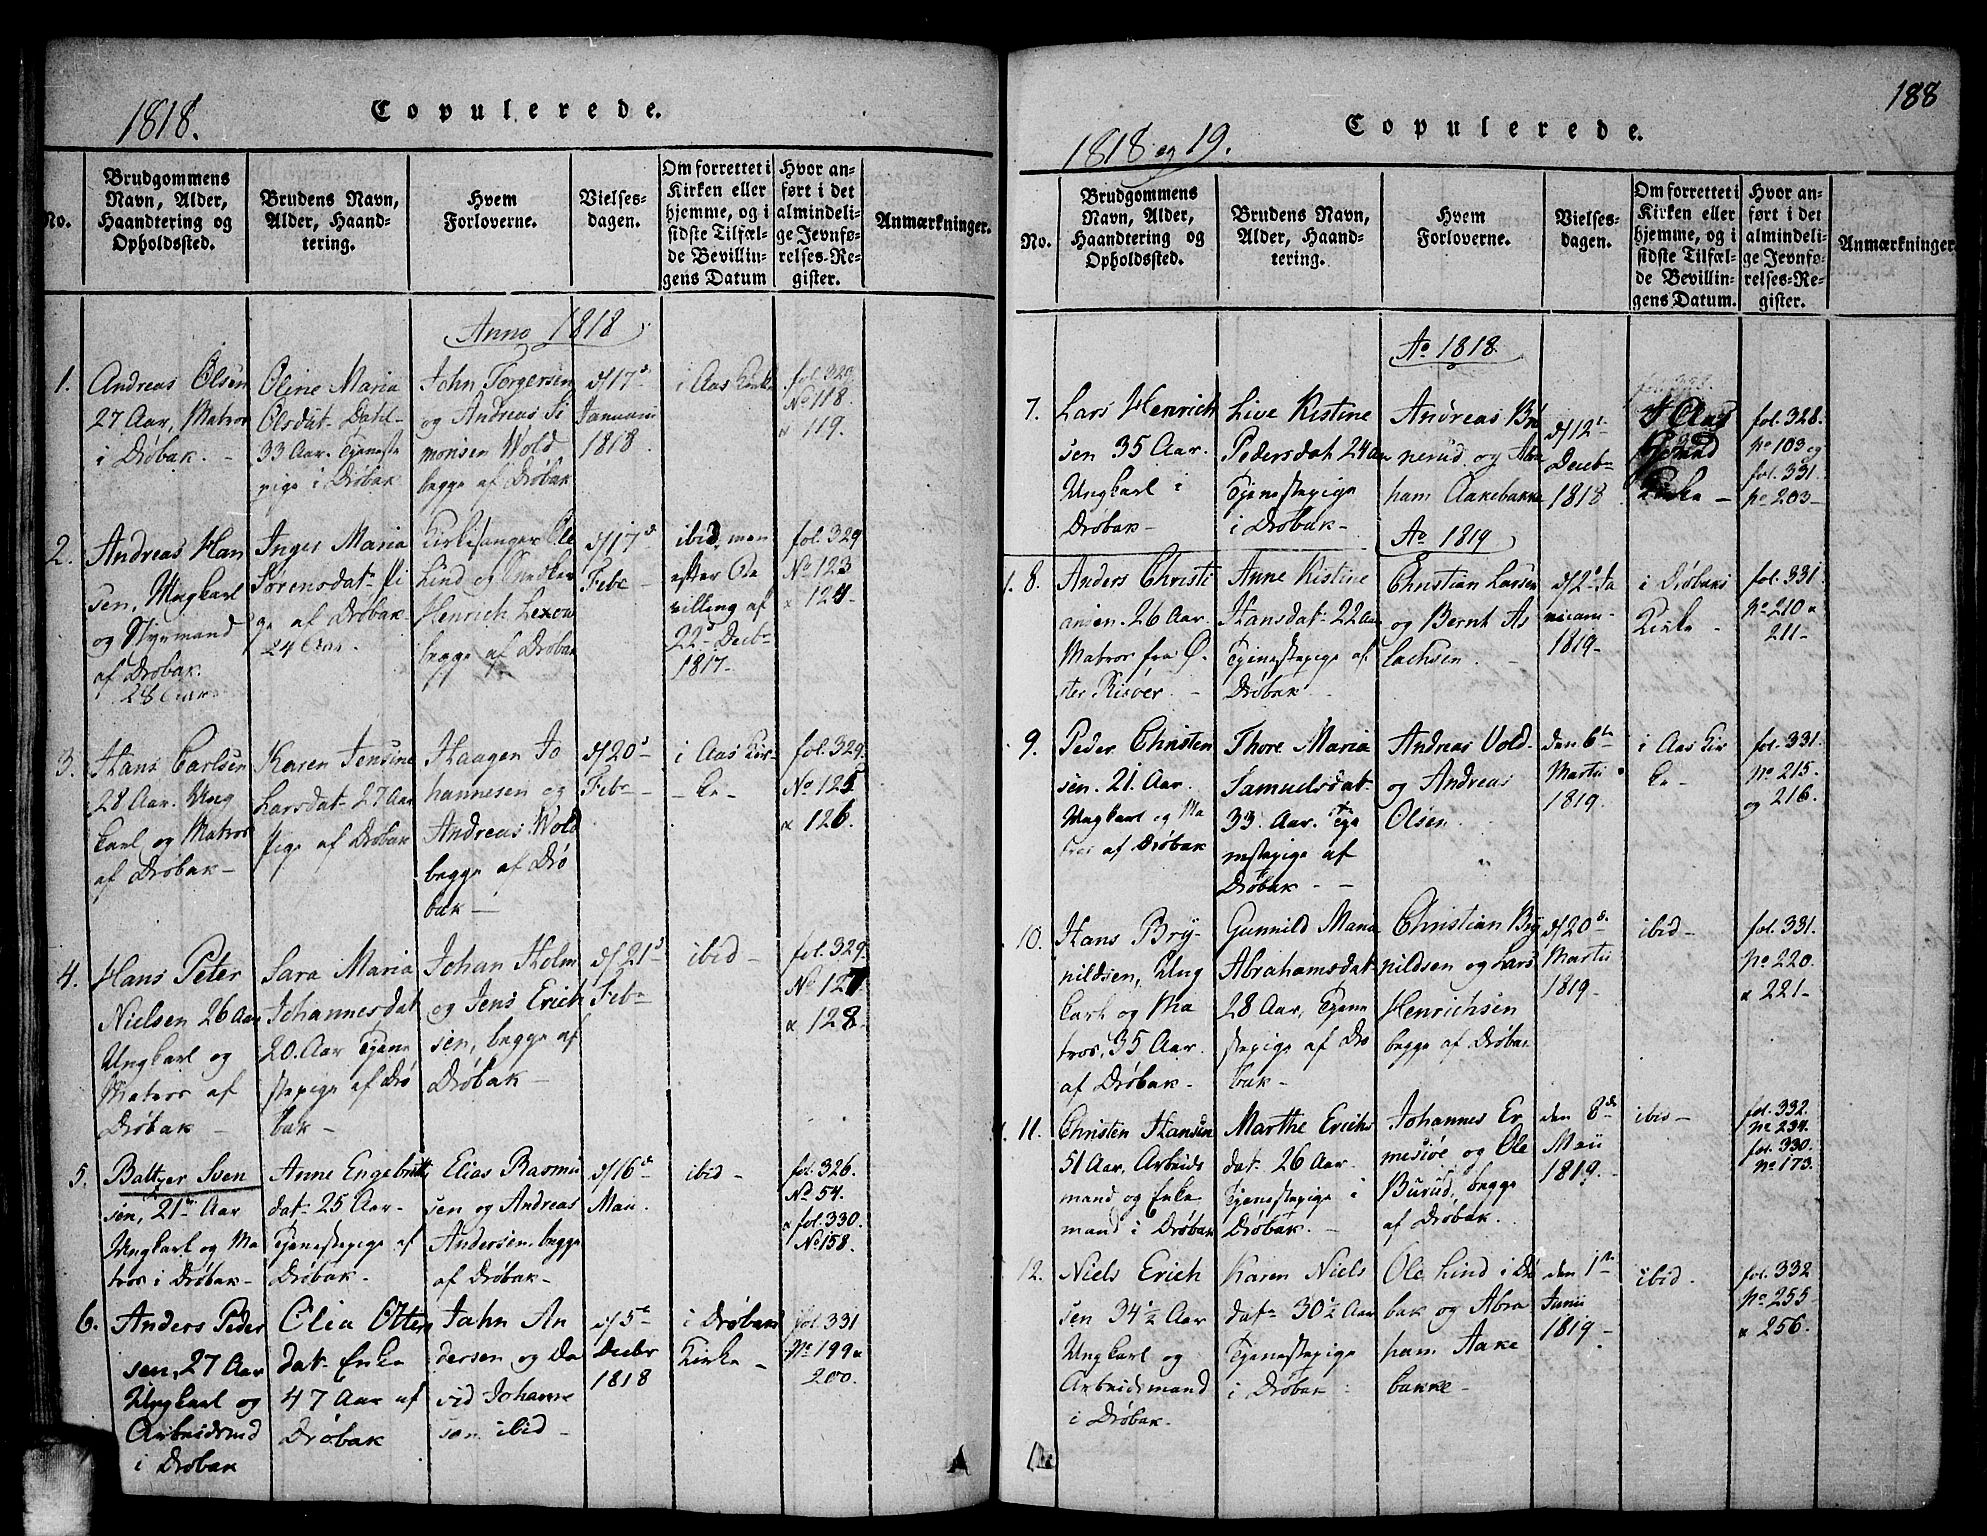 1818.
Copulerede.
No.
Brudgommens
Navn, Alder,
Haandtering og
Opholdssted.
Brudens Navn,
Alder, Haand-
tering.
Hvem
Forloverne.
Vielses-
dagen.
Om forrettet i
Kirken eller
hjemme, og i
sidste Tilfæl-
de Bevillin-
gens Datum
Hvor an-
ført i det
almindeli-
ge Jevnfø-
relses-Re-
gister.
Anmærkninger.
Anno 1818
1.
Andreas Olsen
27 Aar, Matros
i Drøbak. -
Oline Maria
Olsdat- Dahl-
33 Aar. Tjeneste
pige i Drøbak
John Torgersen
og Andreas Si
monsen Wold
begge af Drøbak
d/17d
Januarii
1818.
i Aas Kirke
fol. 329.
No 118.
& 119.
2.
Andreas Han
sen, Ungkarl
og Styrmand
af Drøbak.
28 Aar
Inger Maria
Sørensdat- Pi
ge af Drøbak
24 Aar.
Kirkesanger Ole
Lind og Snedker
Henrich Lexow
begge af Drøbak
d/17d
Febr
ibid, men
efter Be
villing af
22d Decbr
1817-
fol. 329
No 123
& 124.
3.
Hans Carlsen
28 Aar. Ung
karl og Matros
af Drøbak-
Karen Jensine
Larsdat- 27 Aar
Pige af Drøbak
Haagen Jo
hannesen og
Andreas Wold
begge af Drø
bak-
d/20d
Febr
i Aas Kir-
- ke-
fol. 329.
No 125
& 126.
4.
Hans Peter
Nielsen 26 Aar
Ungkarl og
Matros af
Drøbak-
Sara Maria
Johannesdat
20. Aar Tjene
stepige af Drø
bak-
Johan Holm
og Jens Erich
sen, begge af
Drøbak-
d/21d
Febr
ibid-
fol. 329.
No 127
& 128.
5.
Baltzer Sven
sen, 21 Aar
Ungkarl og Ma
tros i Drøbak-
Anne Engebritts
dat- 25 Aar-
Tjenestepige af
Drøbak-
Elias Rasmu
sen og Andreas
Andersen, begge
af Drøbak-
d/16d
Maii.
ibid-
fol. 326.
No. 54.
& fol. 330.
No 158.
6.
Anders Peder
sen, 27 Aar
Ungkarl og
Arbeidsmd
i Drøbak
Olia Otters
dat- Enke
47 Aar af
Drøbak
John An
dersen og Da
vid Johanne
sen ibid-
d/5e
Decbr
1818
i Drøbaks
Kirke-
fol. 331
No 199 &
200.
188
1818 og 19.
Copulerede.
No.
Brudgommens
Navn, Alder,
Haandtering og
Opholdssted.
Brudens Navn,
Alder, Haand-
tering.
Hvem
Forloverne.
Vielses-
dagen.
Om forrettet i
Kirken eller
hjemme, og i
sidste Tilfæl-
de Bevillin-
gens Datum.
Hvor an-
ført i det
almindeli-
ge Jevnfø-
relses-Re-
gister.
Anmærkninger
Ao 1818.
7.
Lars Henrich
sen 35 Aar.
Ungkarl i
Drøbak-
Live Kistine
Pedersdat 24 Aar
Tjenestepige
i Drøbak-
Andreas Brø
nerud og Abra
ham Aakebakke
d/12t
Decbr
1818
Kirke-
fol. 328.
No 103 og
fol. 331.
No 203-
Ao 1819
8.
Anders Christi
ansen. 26 Aar.
Matros fra Ø
ster Risøer. -
Anne Kistine
Hansdat- 22 Aar
Tjenestepige af
Drøbak.
Christian Larsen
og Bernt As
lachsen.
d/2d Ja
nuarii-
1819.
i Drøbaks
Kirke-
fol. 331.
No 210 &
211-
9.
Peder Christen
sen. 21. Aar.
Ungkarl og Ma
tros af Drøbak
Thore Maria
Samuelsdat-
33. Aar. Tje
nestepige af
Drøbak - -
Andreas Vold-
og Andreas
Olsen.
den 6te
Martii
1819.
i Aas Kir
ke-
fol. 331.
No 215.
og 216.
10.
Hans Bry-
nildsen, Ung
karl og Ma
tros, 35 Aar.
af Drøbak-
Gunnild Maria
Abrahamsdat-
28 Aar, Tjene
stepige af Drø
bak-
Christian Bry
nildsen og Lars
Henrichsen
begge af Drøbak
d/20d
Martii
1819-
ibid-
fol. 331.
No 220.
& 221-
11.
Christen Hansen
51 Aar, Arbeids
mand og Enke
mand i Drøbak
Marthe Erichs
dat- 26 Aar.
Tjenestepige i
Drøbak. -
Johannes Er
mesiøe og Ole
Burud, begge
af Drøbak.
den 8de
Maii
1819.
ibid-
fol. 332.
No 234.
fol. 330.
No 173.
12.
Niels Erich
sen 34½ Aar
Ungkarl og
Arbeidsmand
i Drøbak.
Karen Niels
datr 30½ Aar
Tjenestepige
i Drøbak -
Ole Lind i Drø
bak og Abra
ham Aake
bakke-
den 1ste
Junii
1819-
ibid.
fol. 332
No 255-
& 256.